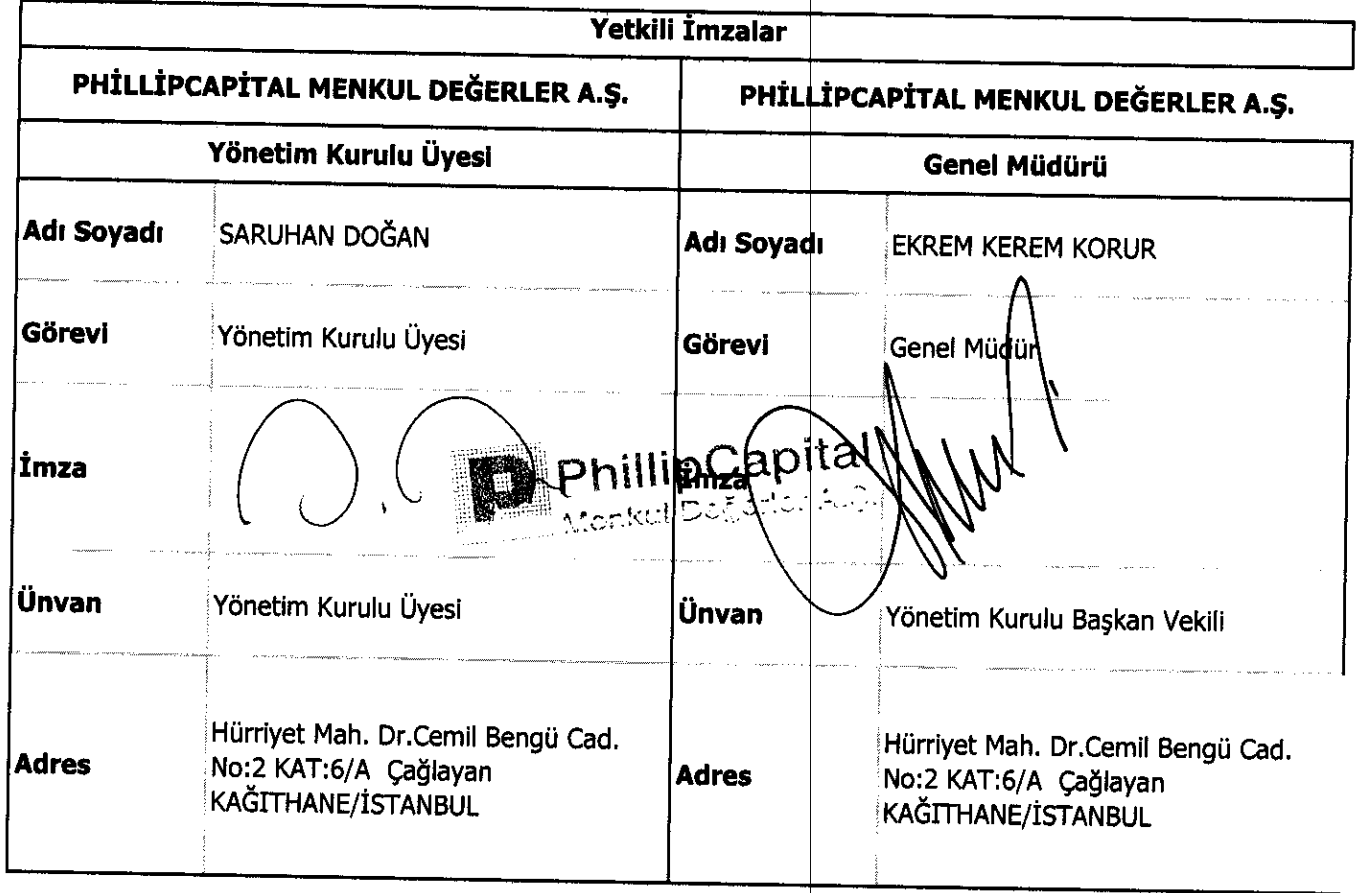 Yetkili İmzalar
PHİLLİPCAPİTAL MENKUL DEĞERLER A.Ş.
PHİLLİPCAPİTAL MENKUL DEĞERLER A.Ş.
Yönetim Kurulu Üyesi
Genel Müdürü
Adı Soyadı SARUHAN DOĞAN
Adı Soyadı EKREM KEREM KORUR
Görevi Yönetim Kurulu Üyesi
Görevi Genel Müdür
İmza
PhillipCapital
Menkul Değerler A.Ş.
İmza
Ünvan Yönetim Kurulu Üyesi
Ünvan Yönetim Kurulu Başkan Vekili
Adres
Hürriyet Mah. Dr.Cemil Bengü Cad.
No:2 KAT:6/A Çağlayan
KAĞITHANE/İSTANBUL
Adres
Hürriyet Mah. Dr.Cemil Bengü Cad.
No:2 KAT:6/A Çağlayan
KAĞITHANE/İSTANBUL